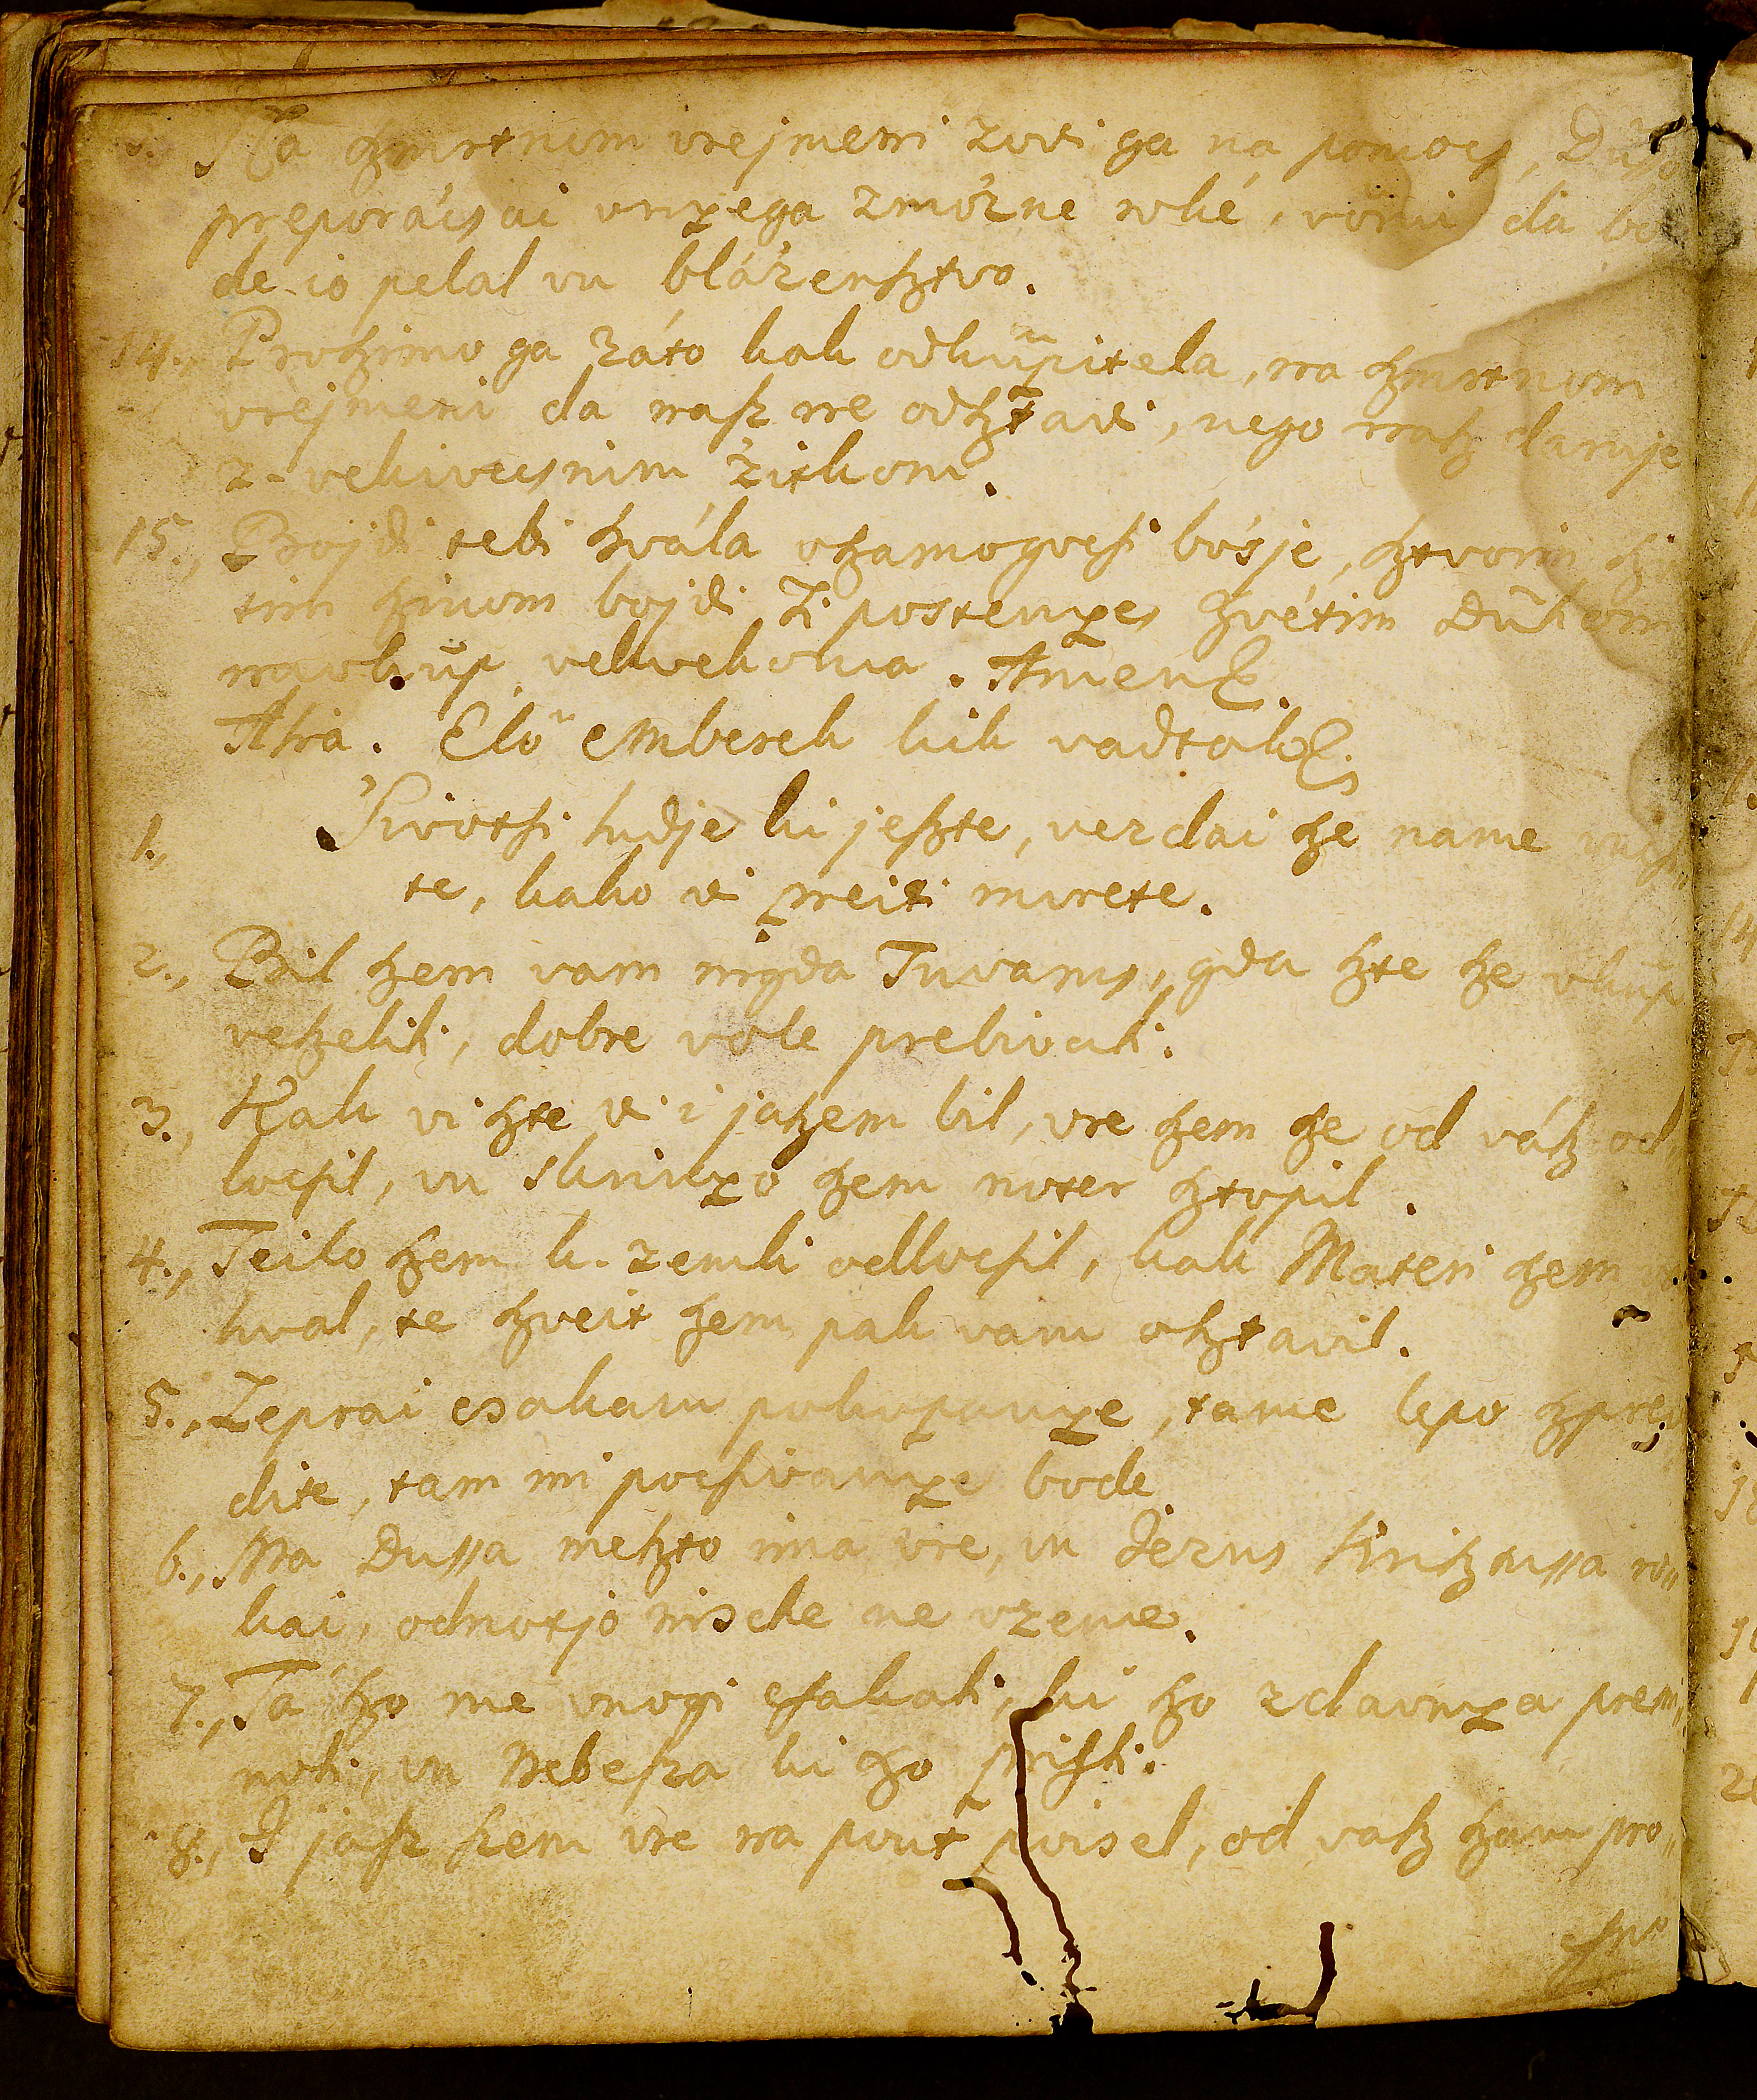 Na ſzmrtnom vrejmeni zovi ga na pomocs, Dusso
preporácsai vnyega zmózne roké, vörui da bo
de jo pelal vu blázenſztvo.
14., Proſzimo ga záto kak odkűpitela, na ſzmrtnom
vrejmeni da naſz ne odſztavi, nego naſz daruje
z-vekivecsnim zitkom.
15., Bojdi tebi hvála vſzamogocsi bósje, ſztvoim
tim ſzinom bojdi ti postenye, ſzvétim Dűhom
navkűp vekvekoma. Amen.
Atria. Elö emberek kik vadtok.
1., Sivotſi ludje ki jeſzte, vezdai ſze name vucsi„
te, kako vi preiti morete.
2., Bil ſzem vam nigda Tuvarus, gda ſzte ſze vkűp
veſzelili, dobre vole prebivali.
3., Kak vi ſzte vi i jaſzem bil, vre ſzem ſze od váſz od„
locsil, vu skrinyo ſzem noter ſztopil.
4., Teilo ſzem k-zemli odlocsil, kak Materi ſzem
hval, te ſzveit ſzem pak vam oſztavil.
5., Zeprai csakam pokopanye, tame lepo ſzprej
dite, tam mi pocsivanye bode
6., Ma Dussa meſzto ima vre, vu Jezus Kriſztussa ro„
kai, odnotjo nische ne vzeme.
7., Ta ſzo me vnogi csakali, ki ſzo zdavnya prem„
noli, vu Nebeſza ki ſzo prisli.
8., I jaſz ſzem vre na pout poisel, od vaſz ſzam pro„